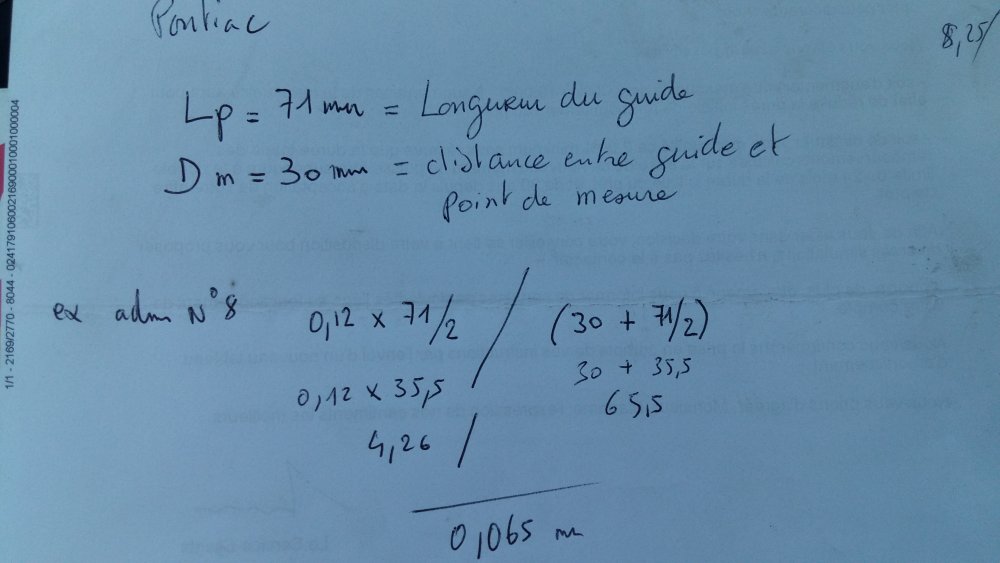 Pontiac
8,25/
Lp = 71 mm = Longueur du guide
Dm = 30 mm = distance entre guide et
point de mesure
ex adm N°8 0,12 x 71/2 / (30 + 71/2)
0,12 x 35,5 30 + 35,5
4,26 / 65,5
0,065 mm
1/1 - 2169/2770 - 8044 - 0241791060021690001000100004